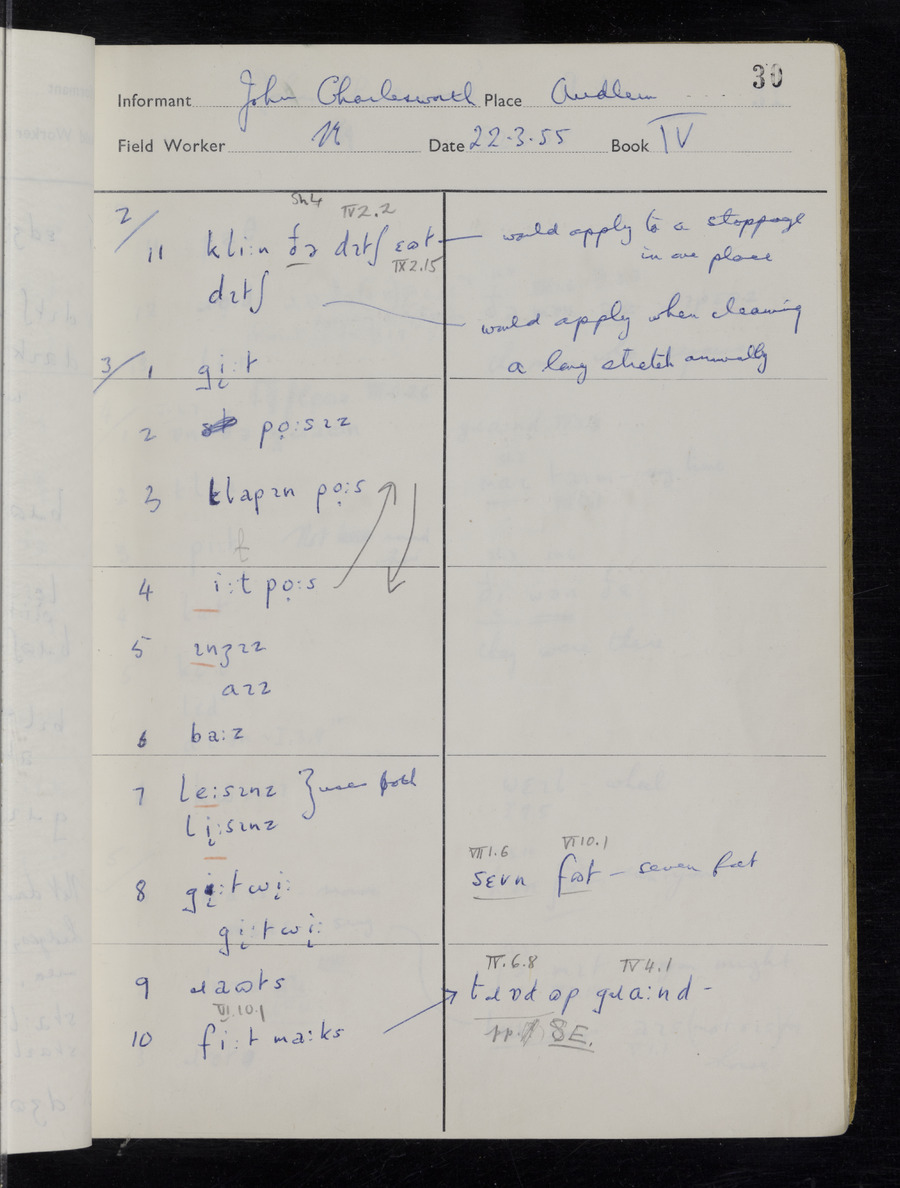 30
Informant John Charlesworth Place Audlem
Field Worker Date 22.3.55 Book IV
2/
Sh4 IV 2.2
11 kli:n ðə dɪtʃ ɛʊt would apply to a stoppage
IX 2.15 in one place
dɪtʃ would apply when cleaning
a long stretch annually
3/ 1 gi̞:t
2 po̞:sɪz
3 klapɪn po̞:s
4 i:t po̞:s
5 ɪnʒɪz
aɪz
6 ba:z
7 le:sɪnz } uses both
li̞:sɪnz
VII 1.6 VI 10.1
8 gi̞:twi̞: sɛvn fʊt – seven foot
gi̞:twi̞:
IV.6.8 IV 4.1
9 ɹaʊts tɹɒd ʊp gɹaʊnd -
VI 10.1
10 fi:t ma:ks SE.